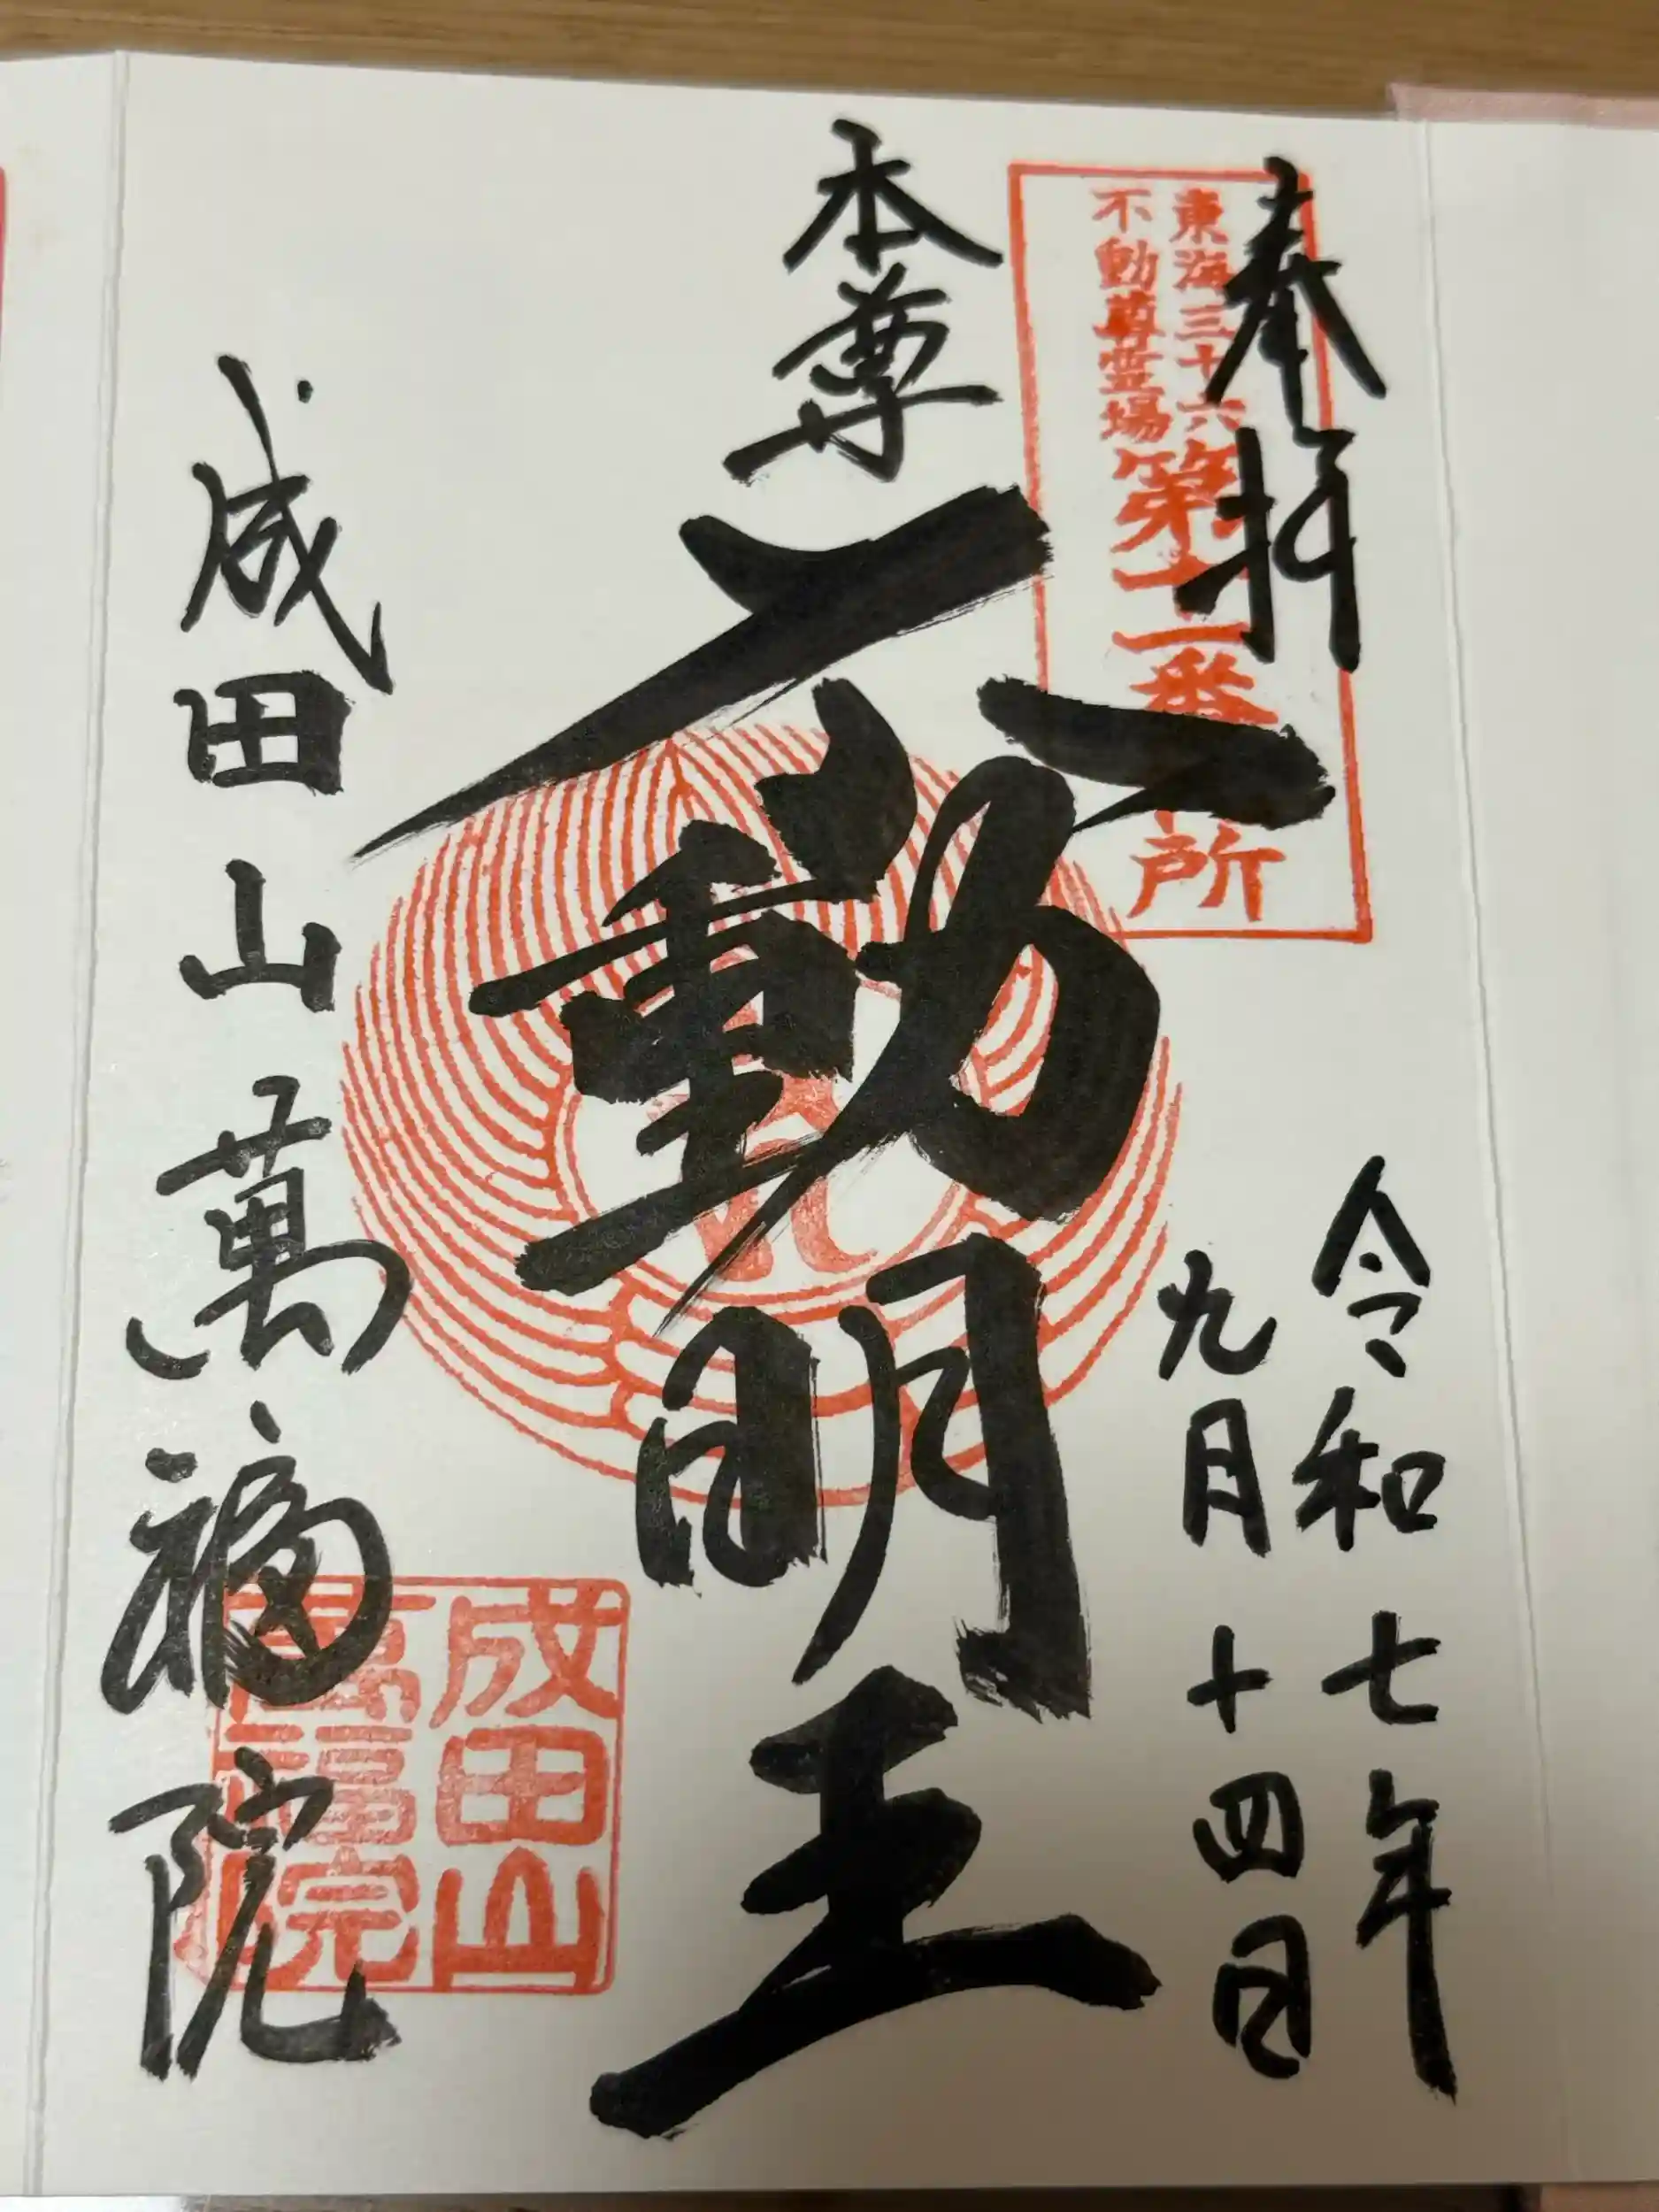 奉拝
東海三十六
不動尊霊場
第十一番 所
令和七年
九月十四日
本尊
不動明王
成田山萬福院
成田山
萬福院